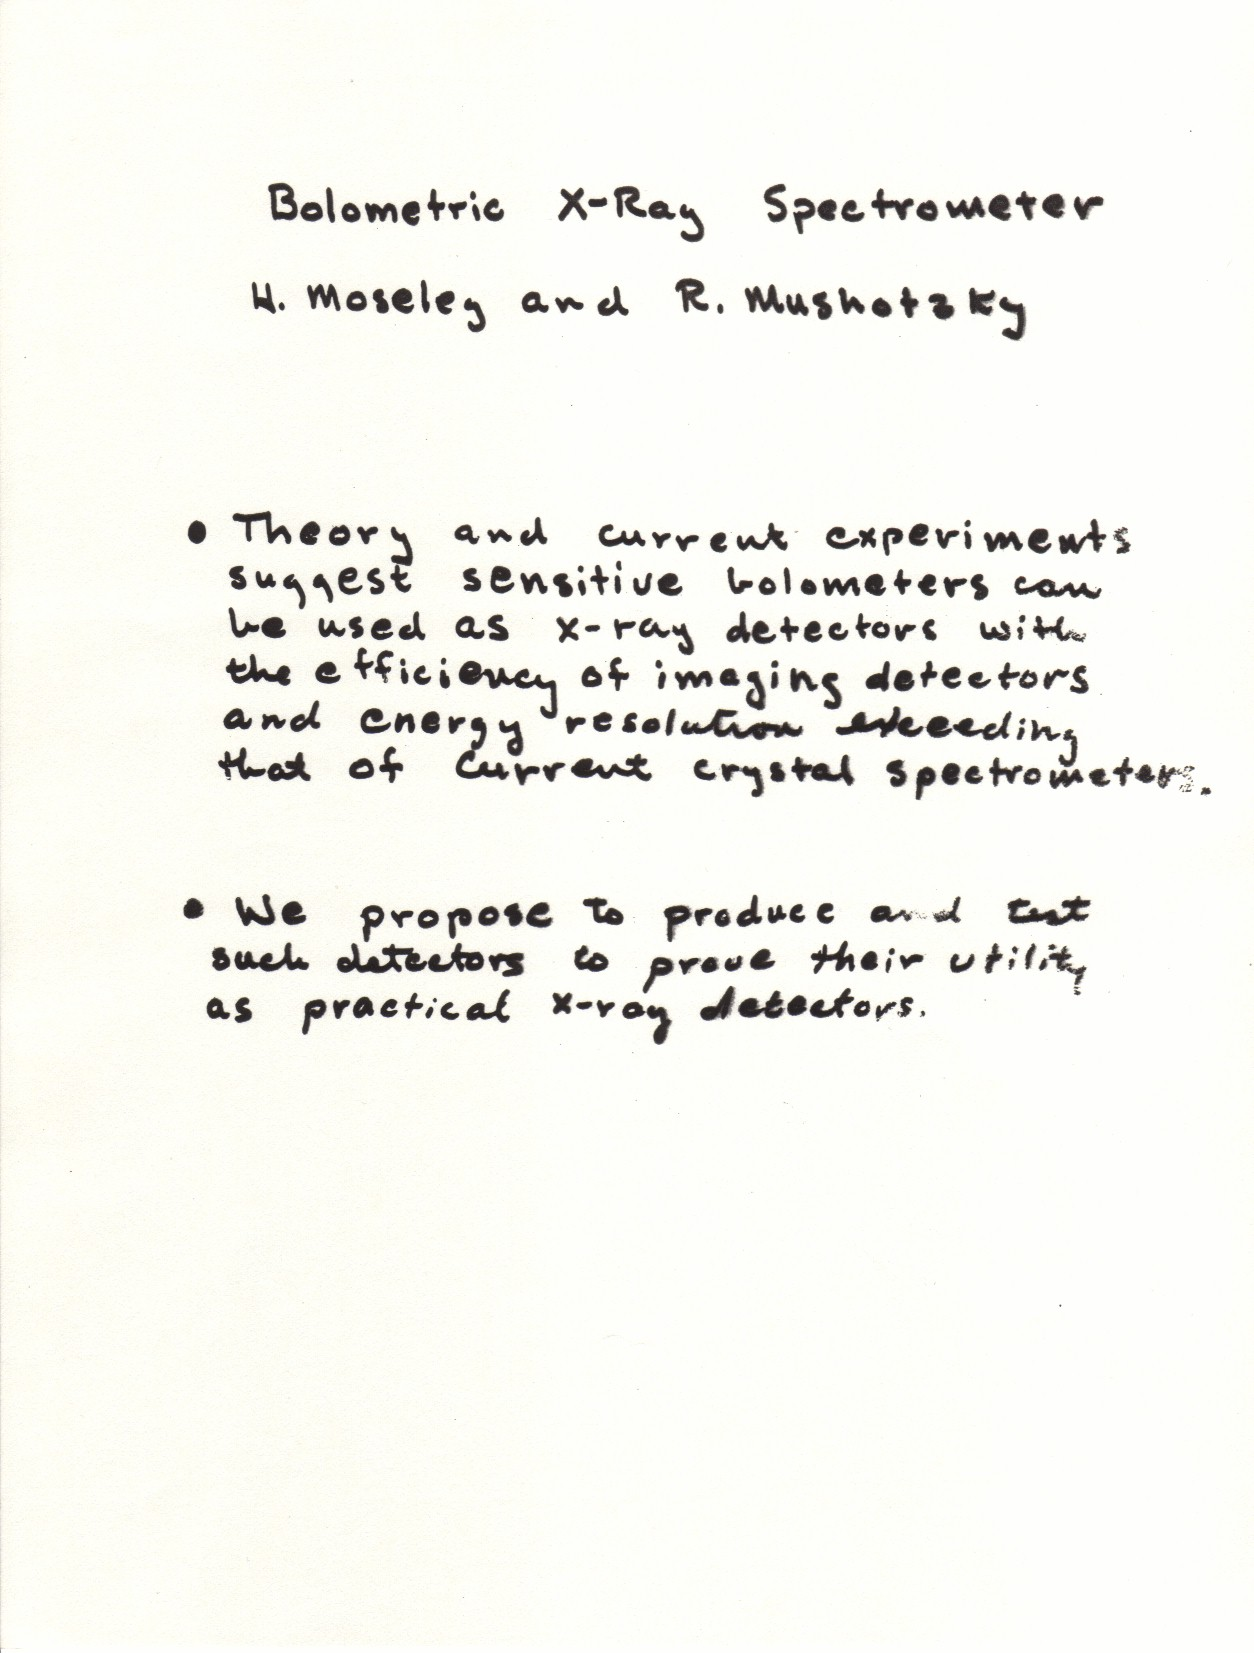 Bolometric X-Ray Spectrometer
H. Moseley and R. Mushotzky
• Theory and current experiments
suggest sensitive bolometers can
be used as x-ray detectors with
the efficiency of imaging detectors
and energy resolution exceeding
that of current crystal spectrometers.
• We propose to produce and test
such detectors to prove their utility
as practical x-ray detectors.